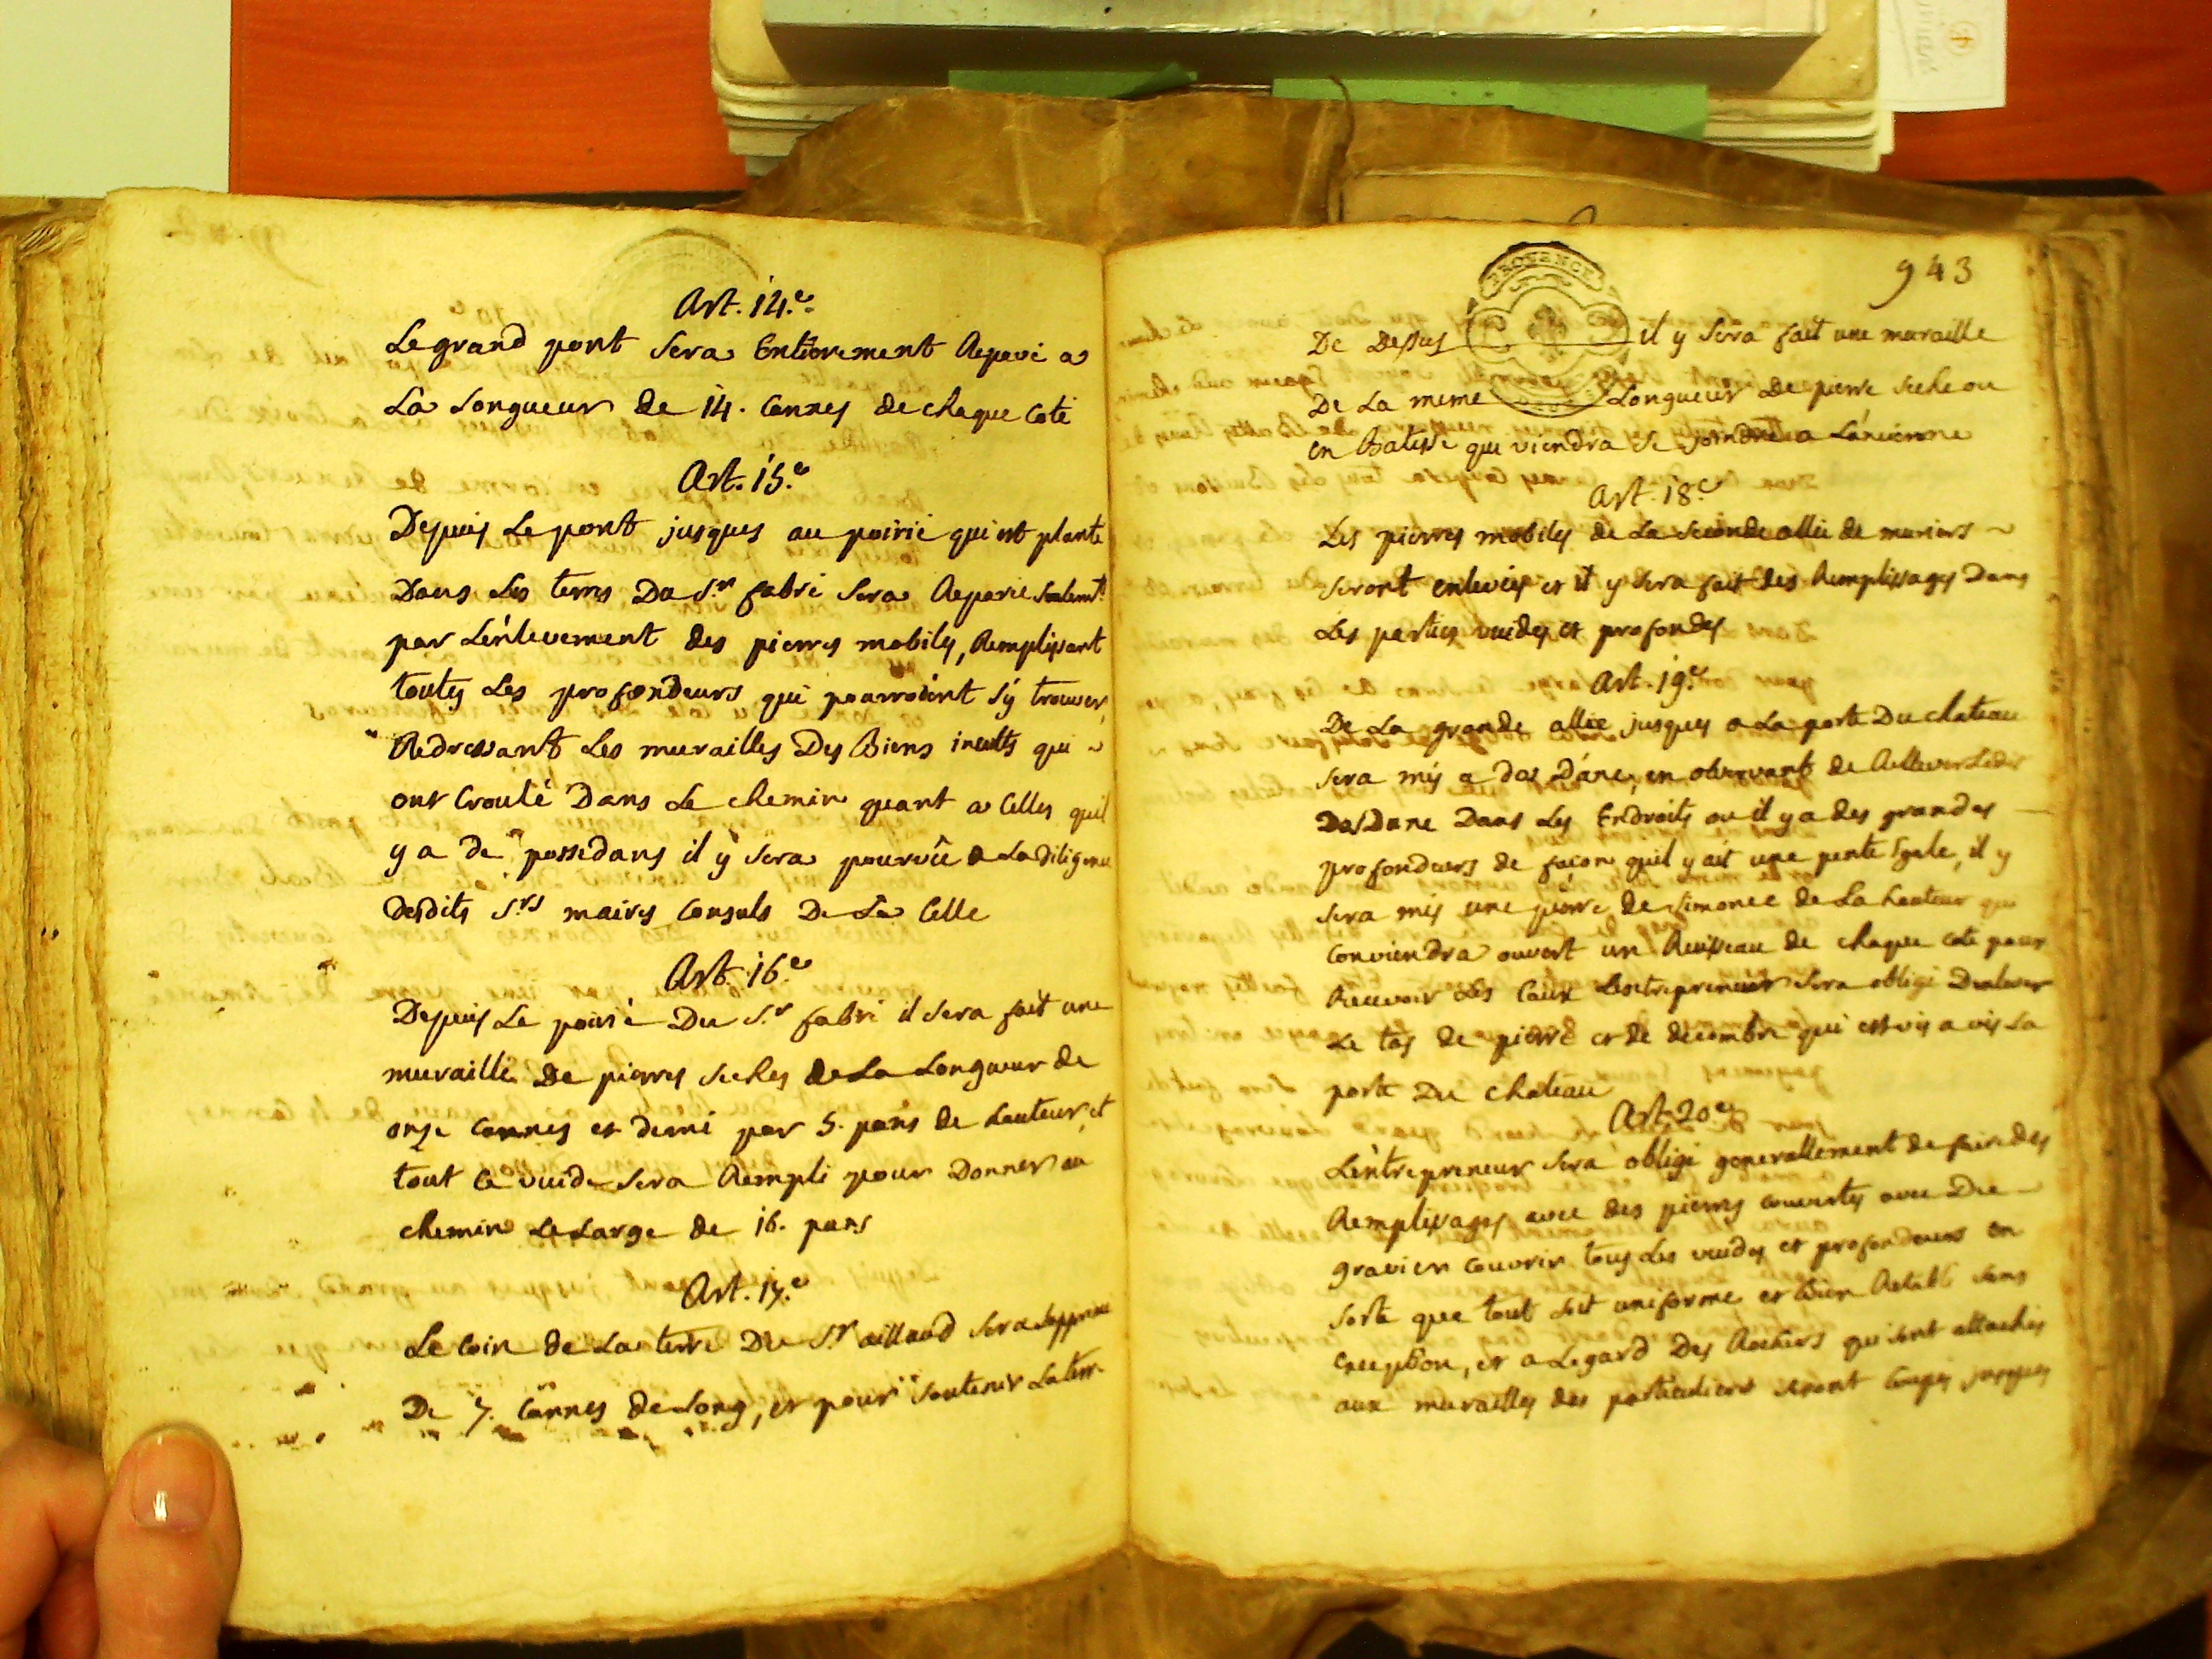 Art. 14.e
Le grand pont Sera Entierement Repavé a
La Longueur de 14. Cannes de chaque Coté
Art. 15.e
Depuis Le pont jusques au poirié qui est planté
Dans Les terres Du Sr. fabre Sera Reparé Seulemt.
par L'enlevement des pierres mobiles, Remplissant
toutes Les profondeurs qui pourroint s'y trouver,
Redressant Les murailles Des Biens incults qui
ont Croulé Dans Le chemin quant a Celles qu'il
y a de possedans il y Sera pourvû a La Diligence
desdits Srs. maires Consuls De La Celle
Art. 16.e
Depuis Le poirié Du Sr. fabre il Sera fait une
muraille De pierres Seches de La Longueur de
onze Cannes et demi par 5. pans de hauteur, et
tout Ce vuide Sera Rempli pour Donner au
chemin Le Large de 16. pans
Art. 17.e
Le Coin de La terre Du Sr. aillaud Sera Supprimé
De 7. Cannes de Long, et pour Soutenir La terre
943
PROVENCE
De Dessus il y Sera fait une muraille
De La meme Longueur De pierre Seche ou
en Batisse qui viendra Se joindre a L'ancienne
Art. 18.e
Les pierres mobiles de La Seconde allée de muriers
Seront enlevées et il y Sera fait des Remplissages Dans
Les parties vuides et profondes
Art. 19.e
De La grande allée jusques a La porte Du chateau
Sera mis a dos D'ane, en observant de Rellever Ledit
Dos Dane Dans Les Endroits ou il y a des grandes
profondeurs de façon qu'il y ait une pente Egale, il y
Sera mis une pierre de Simonce de La hauteur qui
Conviendra ouvert un Ruisseau de chaque Coté pour
Recevoir Les Eaux Lentrepreneur Sera obligé Denlever
Le tas de pierre et de decombre qui est vis a vis La
porte Du chateau
Art. 20.e
L'entrepreneur Sera obligé generallement de faire des
Remplissages avec des pierres Couvertes avec Du
gravier Couvrir tous Les vuides et profondeurs en
Sorte que tout Soit uniforme et bien Retabli Sans
Exception, et a Legard Des Rochers qui sont attachés
aux murailles des particuliers Seront Coupés jusques